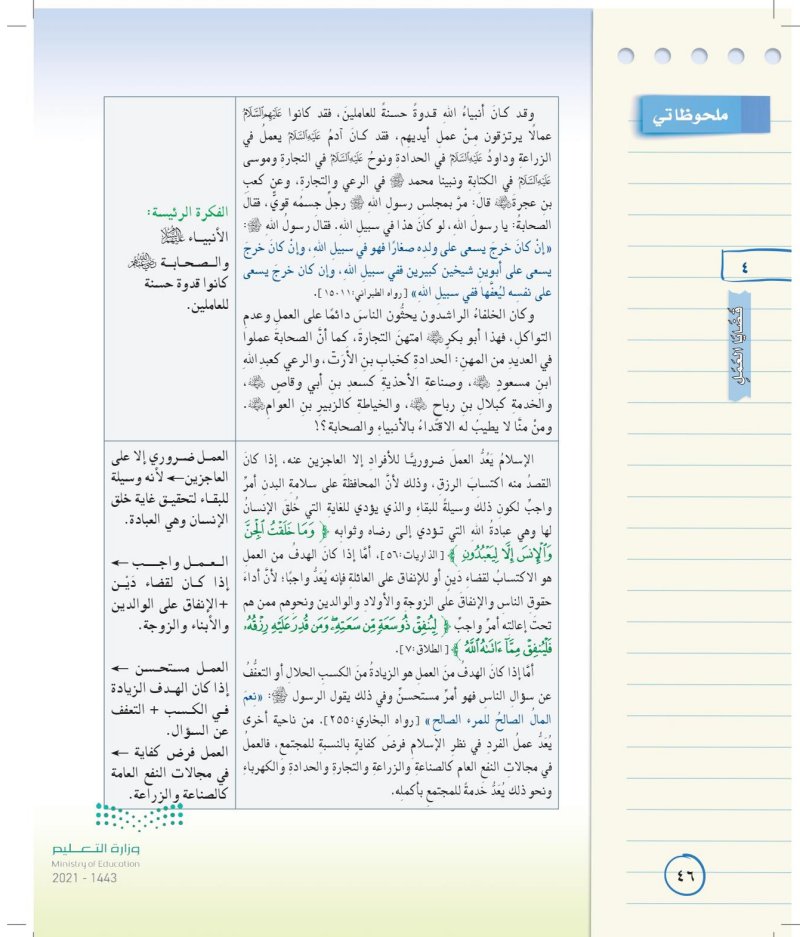 ملحوظاتي
٤
قَضَايَا العَمَلِ
وقد كـانَ أنبياءُ اللهِ قـدوةً حسنةً للعاملينَ، فقد كانوا عَلَيْهِمُ السَّلَامُ
عمالًا يرتزقون مِـنْ عملِ أيديهِم، فقد كـانَ آدمُ عَلَيْهِ السَّلَامُ يعملُ في
الزراعة وداودُ عَلَيْهِ السَّلَامُ في الحدادة ونوحُ عَلَيْهِ السَّلَامُ في النجارة وموسى
عَلَيْهِ السَّلَامُ في الكتابة ونبينا محمد ﷺ في الرعي والتجارة، وعن كعبِ
بن عجرةَ رضي الله عنه قالَ: مرَّ بمجلس رسول الله ﷺ رجلٌ جسمُه قويٌّ، فقالَ
الصحابةُ: يا رسولَ اللهِ، لو كانَ هذا في سبيلِ الله. فقالَ رسولُ اللهِ ﷺ:
«إنْ كانَ خرجَ يسعى على ولدِه صغارًا فهو في سبيلِ اللهِ، وإنْ كانَ خرجَ
يسعى على أبوينِ شيخينِ كبيرين ففي سبيلِ اللهِ، وإن كان خرجَ يسعى
على نفسِه ليُعفَّها ففي سبيلِ اللهِ» [رواه الطبراني:١٥٠١١].
وكان الخلفاءُ الراشدون يحثُّون الناسَ دائمًا على العملِ وعدمِ
التواكل، فهذا أبو بكرٍ رضي الله عنه امتهنَ التجارةَ، كما أنَّ الصحابةَ عملوا
في العديدِ من المهنِ: الحدادة كخبابِ بنِ الأرَتّ، والرعي كعبدِاللهِ
ابنِ مسعودٍ رضي الله عنه، وصناعةِ الأحذيةِ كسعدِ بنِ أبي وقاصٍ رضي الله عنه،
والخدمةِ كبلالِ بنِ رباحٍ رضي الله عنه، والخياطةِ كالزبيرِ بنِ العوامِ رضي الله عنه.
ومنْ منَّا لا يطيبُ له الاقتداءُ بالأنبياءِ والصحابة؟!
الفكرة الرئيسة:
الأنبيـاء عليهم السلام
والـصـحـابـة رضي الله عنهم
كانوا قدوة حسنة
للعاملين.
الإسلامُ يَعُدُّ العملَ ضروريًّـا للأفرادِ إلا العاجزين عنه، إذا كانَ
القصدُ منه اكتسابَ الرزقِ، وذلك لأنَّ المحافظةَ على سلامةِ البدنِ أمرٌ
واجبٌ لكون ذلكَ وسيلةً للبقاءِ والذي يؤدي للغايةِ التي خُلقَ الإنسانُ
لها وهي عبادةُ اللهِ التي تـؤدي إلى رضاه وثوابه ﴿وَمَا خَلَقْتُ ٱلْجِنَّ
وَٱلْإِنسَ إِلَّا لِيَعْبُدُونِ﴾ [الذاريات:٥٦]. أمَّا إذا كانَ الهدفُ من العملِ
هو الاكتسابُ لقضاءِ دَينٍ أو للإنفاق على العائلةِ فإنه يُعَدُّ واجبًا؛ لأنَّ أداءَ
حقوقِ الناسِ والإنفاقَ على الزوجةِ والأولادِ والوالدينِ ونحوهِم ممن هم
تحتَ إعالتِه أمرٌ واجبٌ ﴿لِيُنفِقْ ذُو سَعَةٍ مِّن سَعَتِهِۦ وَمَن قُدِرَ عَلَيْهِ رِزْقُهُۥ
فَلْيُنفِقْ مِمَّآ ءَاتَىٰهُ ٱللَّهُ﴾ [الطلاق:٧].
أمَّا إذا كانَ الهدفُ منَ العملِ هو الزيادةُ منَ الكسبِ الحلالِ أو التعفُّفُ
عن سؤالِ الناسِ فهو أمرٌ مستحسنٌ وفي ذلك يقول الرسول ﷺ: «نِعمَ
المالُ الصالحُ للمرءِ الصالحِ» [رواه البخاري:٢٥٥]. من ناحيةٍ أخرى
يُعدُّ عملُ الفردِ في نظرِ الإسلامِ فرضَ كفايةٍ بالنسبةِ للمجتمعِ، فالعملُ
في مجالات النفع العام كالصناعةِ والزراعةِ والتجارةِ والحدادةِ والكهرباءِ
ونحو ذلك يُعَدُّ خدمةً للمجتمعِ بأكملِه.
العمـل ضـروري إلا على
العاجزين← لأنه وسيلة
للبقاء لتحقيـق غاية خلق
الإنسان وهي العبادة.
الـعـمـل واجـــب ←
إذا كـان لقضاء دَيْـن
+الإنفاق على الوالدين
والأبناء والزوجة.
العمل مستحسـن ←
إذا كان الهـدف الزيادة
فـي الكـسب + التعفف
عن السؤال.
العمل فرض كفاية ←
في مجالات النفع العامة
كالصناعة والزراعة.
وزارة التـعـلـيم
Ministry of Education
2021 - 1443
٤٦